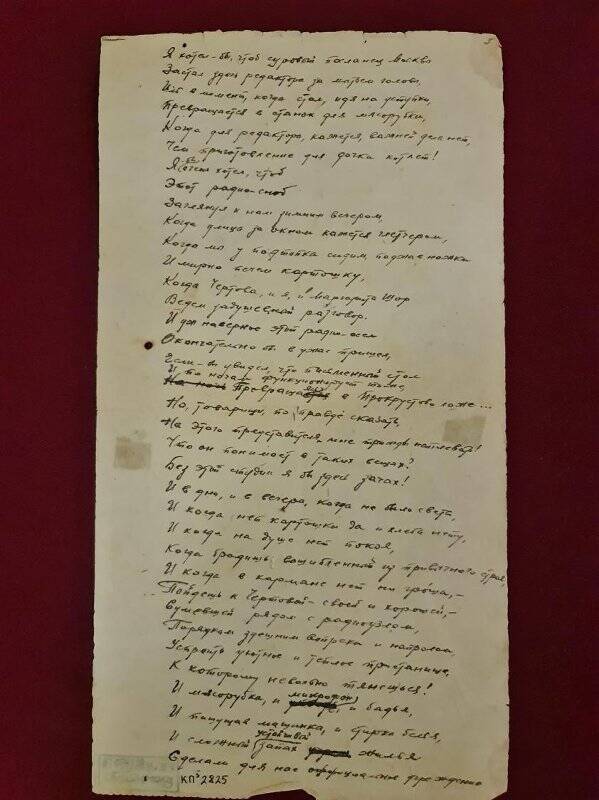 5
Я хотел-бы, чтоб суровый посланец Москвы
Застал здесь редактора за мытьем головы
Иль в момент, когда стол, идя на уступки,
Превращается в станок для мясорубки,
Когда для редактора, кажется, важней дел нет,
Чем приготовление для дочки котлет!
Я бы хотел, чтоб
Этот радио-сноб
Заглянул к нам зимним вечером,
Когда улица за окном кажется глетчером,
Когда мы у подтопка сидим, поджав ножки
И мирно печем картошку,
Когда Чертова, и я, и Маргарита Шор
Ведем задушевный разговор.
И уж наверное этот радио-осел
Окончательно бы в ужас пришел,
Если-бы увидел, что письменный стол
И по ночам функционирует тоже,
Превращаясь в Прокрустово ложе...
Но, товарищи, по правде сказать,
На этого представителя мне трижды наплевать!
Что он понимает в таких вещах?
Без этой студии я бы здесь зачах!
И в дни, и в вечера, когда не было света,
И когда нет картошки да и хлеба нету,
И когда на душе нет покоя,
Когда бродишь, вышибленный из привычного строя,
И когда в кармане нет ни гроша,-
Пойдешь к Чертовой - своей и хорошей,-
Сумевшей рядом с радиоузлом,
Порядкам здешним вопреки и напролом,
Устроить уютное и теплое пристанище,
К которому невольно тянешься!
И мясорубка, и микрофон, и бадья,
И пишущая машинка, и стирка белья,
И сложный устойчивый запах жилья
Сделали для нас официальное учреждение
КП 2825